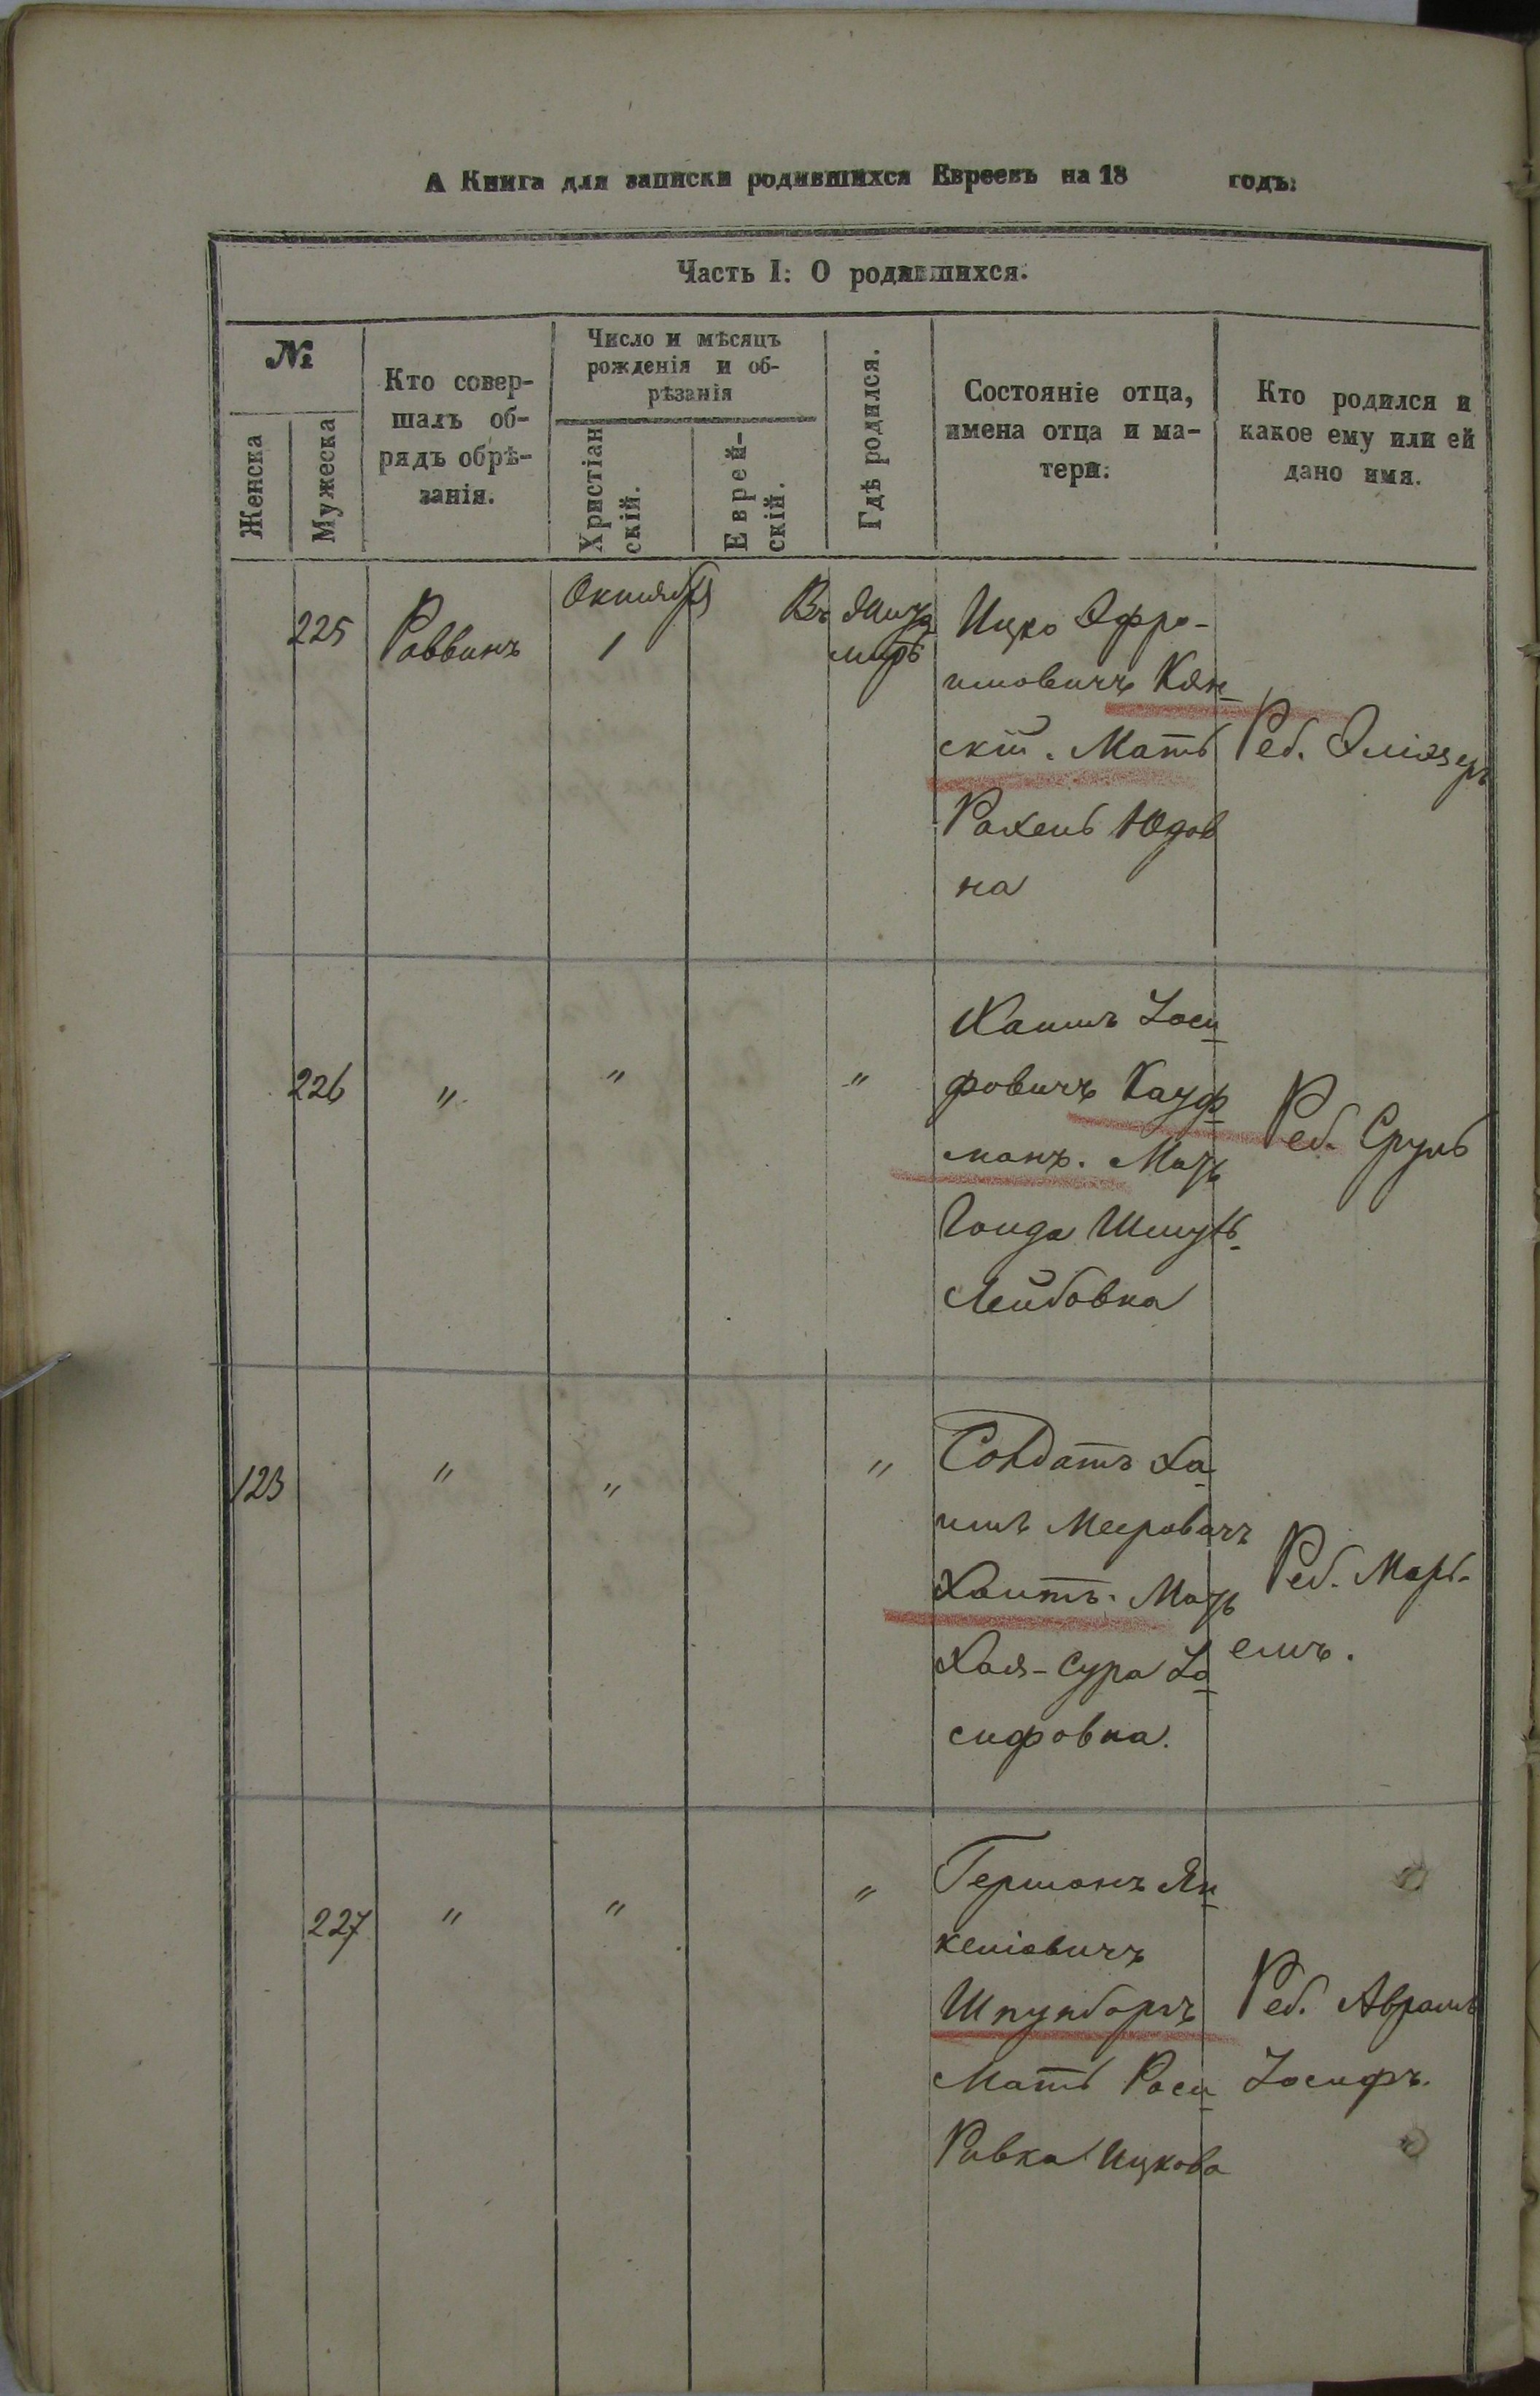 А Книга для записки родившихся Евреевъ на 18 годъ:
Часть I: О родившихся.
№
Женска
Мужеска
Кто совер-
шалъ об-
рядъ обрѣ-
занія.
Число и мѣсяцъ
рожденія и об-
рѣзанія
Христіан
скій.
Еврей-
скій.
Гдѣ родился.
Состояніе отца,
имена отца и ма-
тери:
Кто родился и
какое ему или ей
дано имя.
225
Раввинъ
Октября
1
Въ
Ицко Эфро-
имовичъ Кан-
скій. Мать
Рахель Юдов
на
Реб. Эліазеръ
226
"
"
"
Хаимъ Іоси
фовичъ Кауф
манъ. Мать
Голда Шмуль
Лейбовна
Реб. Сруль
123
"
"
"
Солдатъ Ха
имъ Меровичъ
Хаитъ. Мать
Хая-Сура Іо
сифовна.
Реб. Марь-
емъ.
227
"
"
"
Гершонъ Ян
келіовичъ
Шпунбергъ
Мать Роси
Ривка Ицкова
Реб. Аврамъ
Іосифъ.